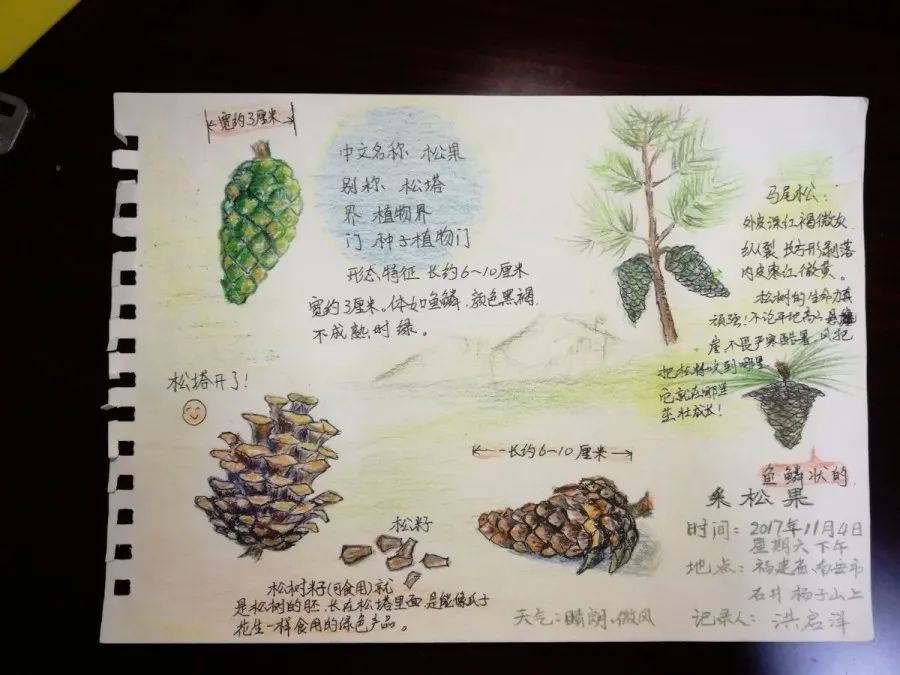 宽约3厘米
中文名称 松果
别称 松塔
界 植物界
门 种子植物门
形态特征 长约6~10厘米
宽约3厘米。体如鱼鳞,颜色黑褐
不成熟时绿。
马尾松:
外皮深红褐微灰
纵裂,长方形剥落
内皮枣红微黄。
松树的生命力真
顽强!不论平地高山悬
崖,不畏严寒酷暑,风把
把松籽吹到哪里
它就在哪里
茁壮成长!
松塔开了!
长约6~10厘米
松籽
鱼鳞状的
松树籽(可食用)就
是松树的胚,长在松塔里面,是能像瓜子
花生一样食用的绿色产品。
采松果
时间:2017年11月4日
星期六下午
地点:福建省南安市
石井杨子山上
天气:晴朗、微风
记录人:洪启洋